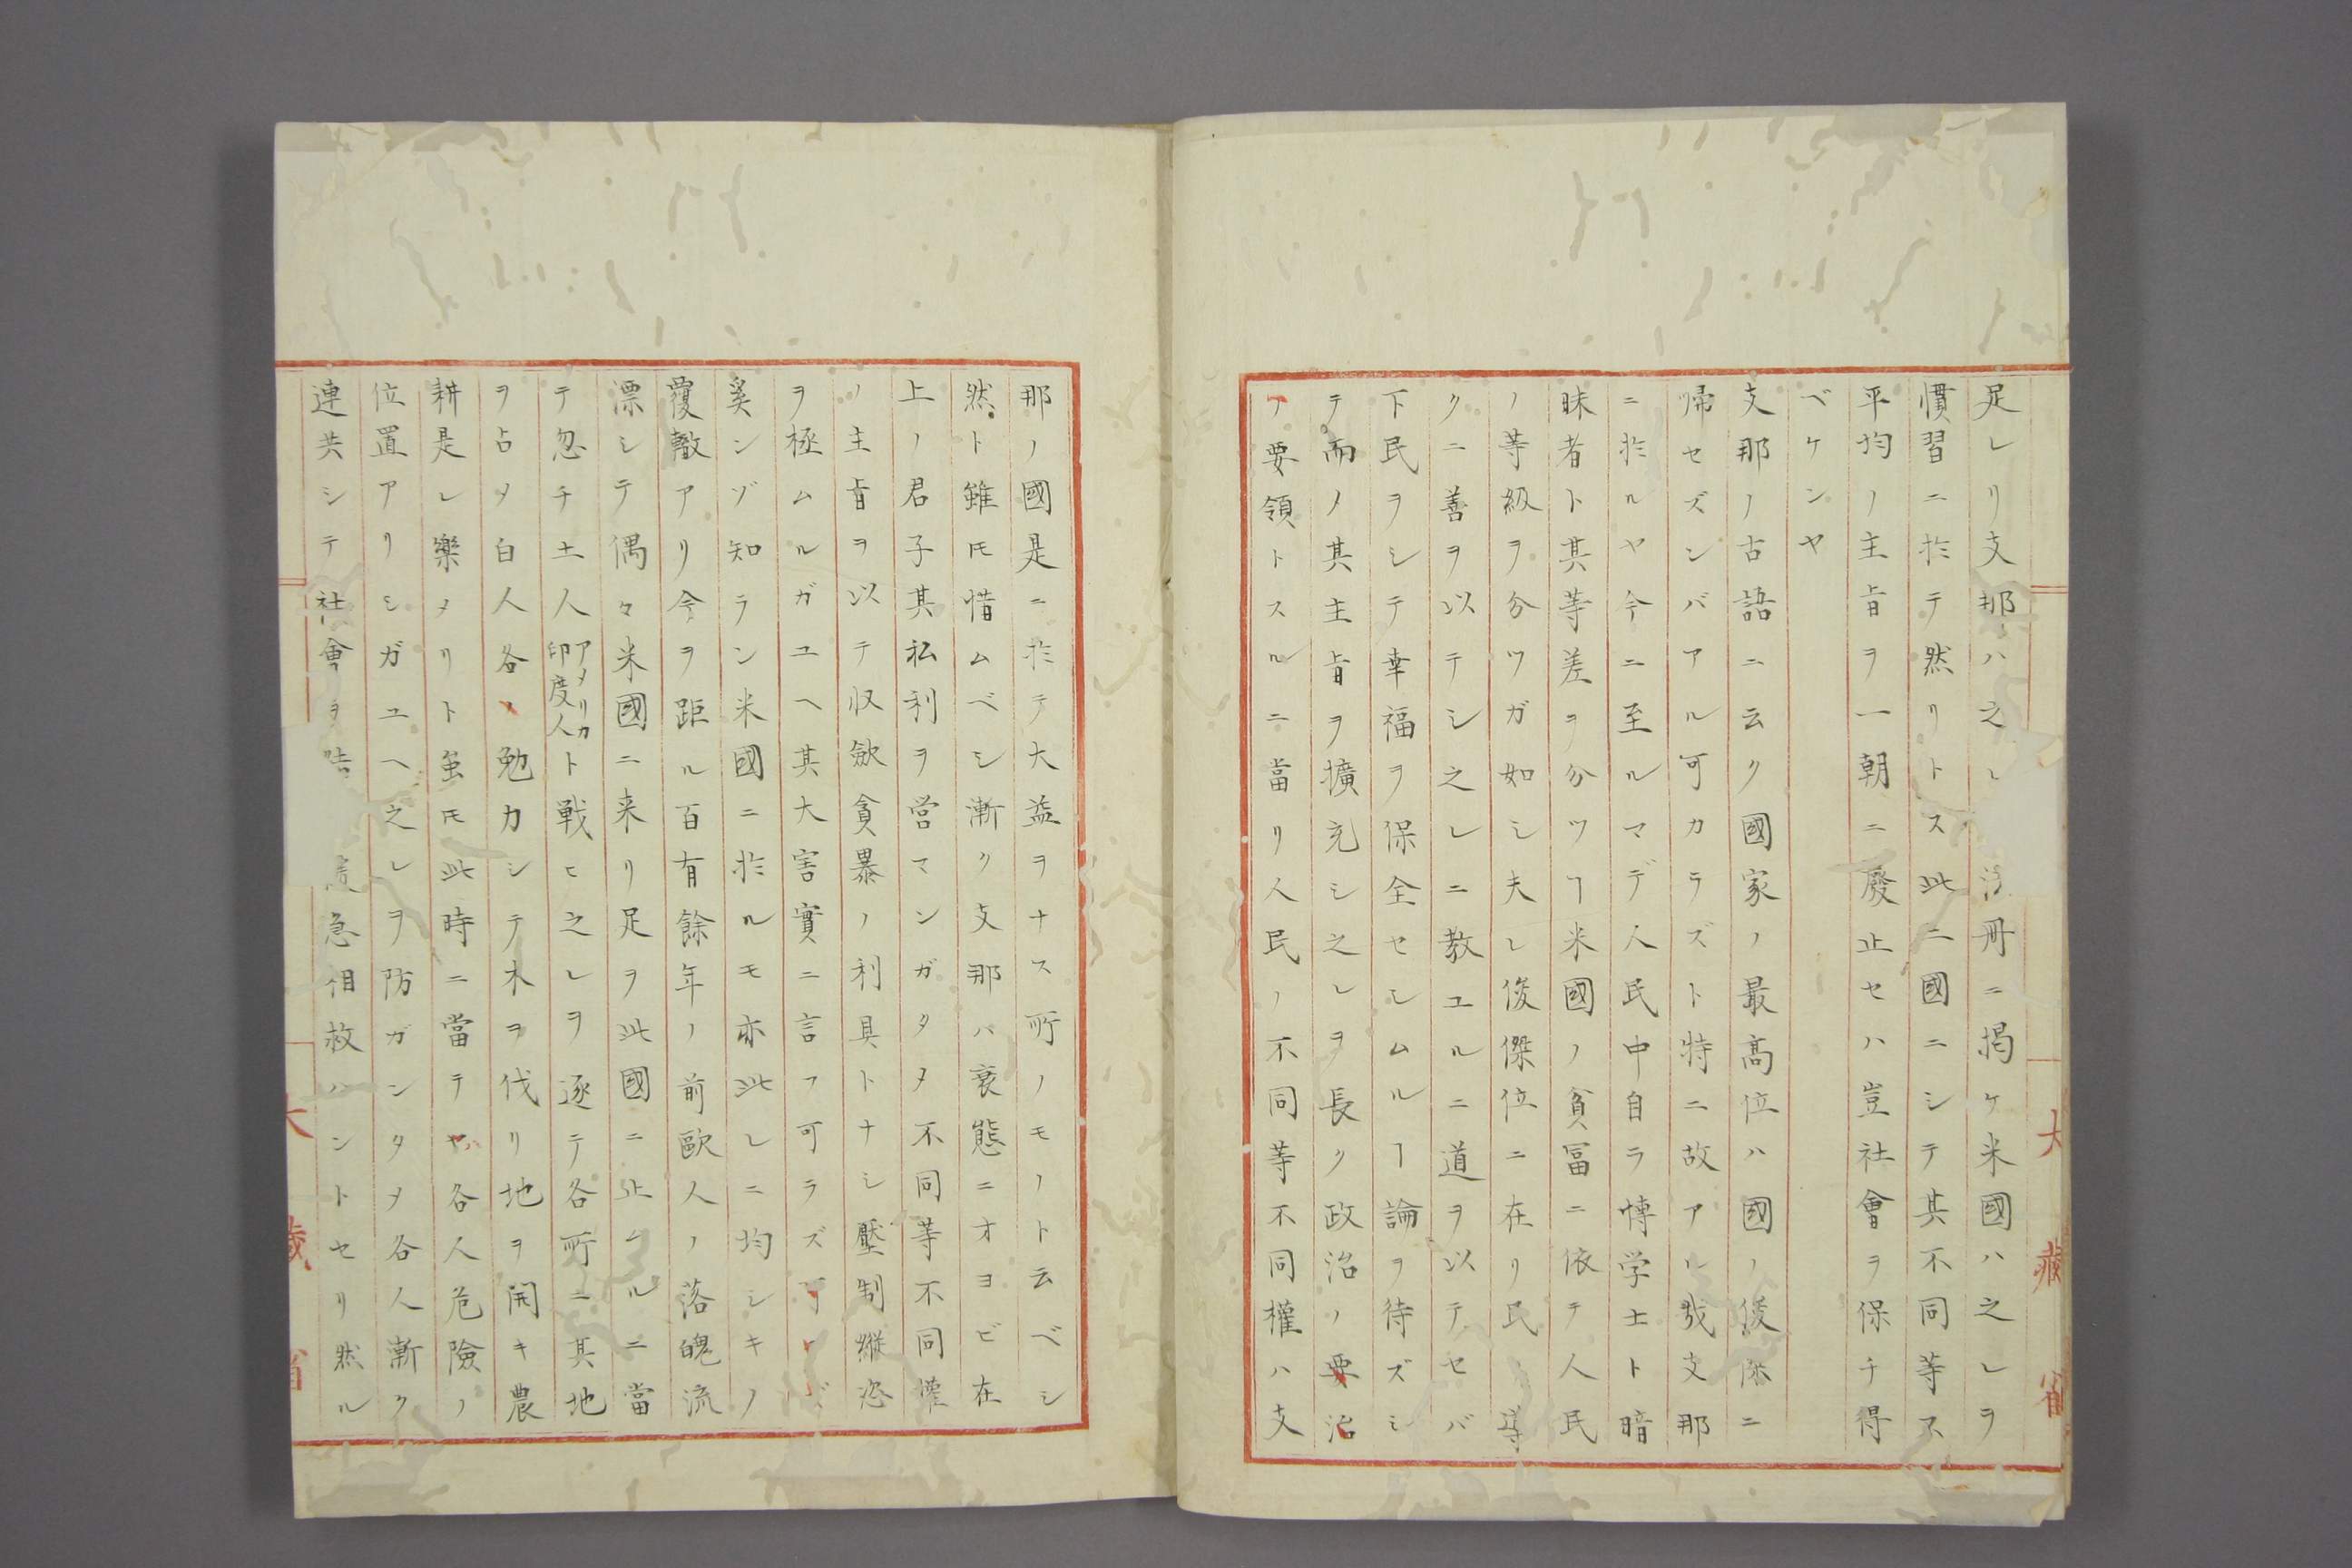 足レリ支那ハ之レ 冊ニ掲ケ米國ハ之レヲ
慣習ニ於テ然リトス此二國ニシテ其不同等ス
平均ノ主旨ヲ一朝ニ廢止セハ豈社會ヲ保チ得
ベケンヤ
支那ノ古語ニ云ク國家ノ最高位ハ國ノ俊傑ニ
帰セズンバアル可カラズト特ニ故アル哉支那
ニ於ルヤ今ニ至ルマデ人民中自ラ博学士ト暗
昧者ト其等差ヲ分ツヿ米國ノ貧冨ニ依テ人民
ノ等級ヲ分ツガ如シ夫レ俊傑位ニ在リ民ヲ導
クニ善ヲ以テシ之レニ教ユルニ道ヲ以テセバ
下民ヲシテ幸福ヲ保全セシムルヿ論ヲ待ズシ
テ而ノ其主旨ヲ擴充シ之レヲ長ク政治ノ要治
ノ要領トスルニ當リ人民ノ不同等不同權ハ支
那ノ國是ニ於テ大益ヲナス所ノモノト云ベシ
然ト雖𪜈惜ムベシ漸ク支那ハ衰態ニオヨビ在
上ノ君子其私利ヲ営マンガタメ不同等不同權
ノ主旨ヲ以テ収斂貪暴ノ利具トナシ壓制縦恣
ヲ極ムルガユヘ其大害實ニ言フ可ラズ
奚ンゾ知ラン米國ニ於ルモ亦此レニ均シキノ
覆轍アリ今ヲ距ル百有餘年ノ前歐人ノ落魄流
漂シテ偶々米國ニ来リ足ヲ此國ニ止ムルニ當
テ忽チ土人アメリカ印度人ト戦ヒ之レヲ逐テ各所ニ其地
ヲ占メ白人各々勉力シテ木ヲ伐リ地ヲ開キ農
耕是レ樂メリト虽𪜈此時ニ當テヤ各人危險ノ
位置アリシガユヘ之レヲ防ガンタメ各人漸ク
連共シテ社會ヲ 急相救ハントセリ然ル
大藏省
大藏省